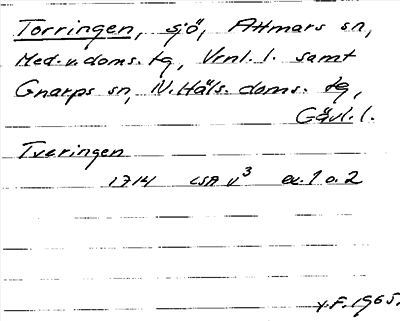 Torringen, sjö, Attmars sn,
Med. v. doms. tg, Vrnl. l. samt
Gnarps sn, N. Häls. doms. tg,
Gävl. l.
Tveringen
1714 LSA V³ ex. 1 o. 2
Y.F. 1965.